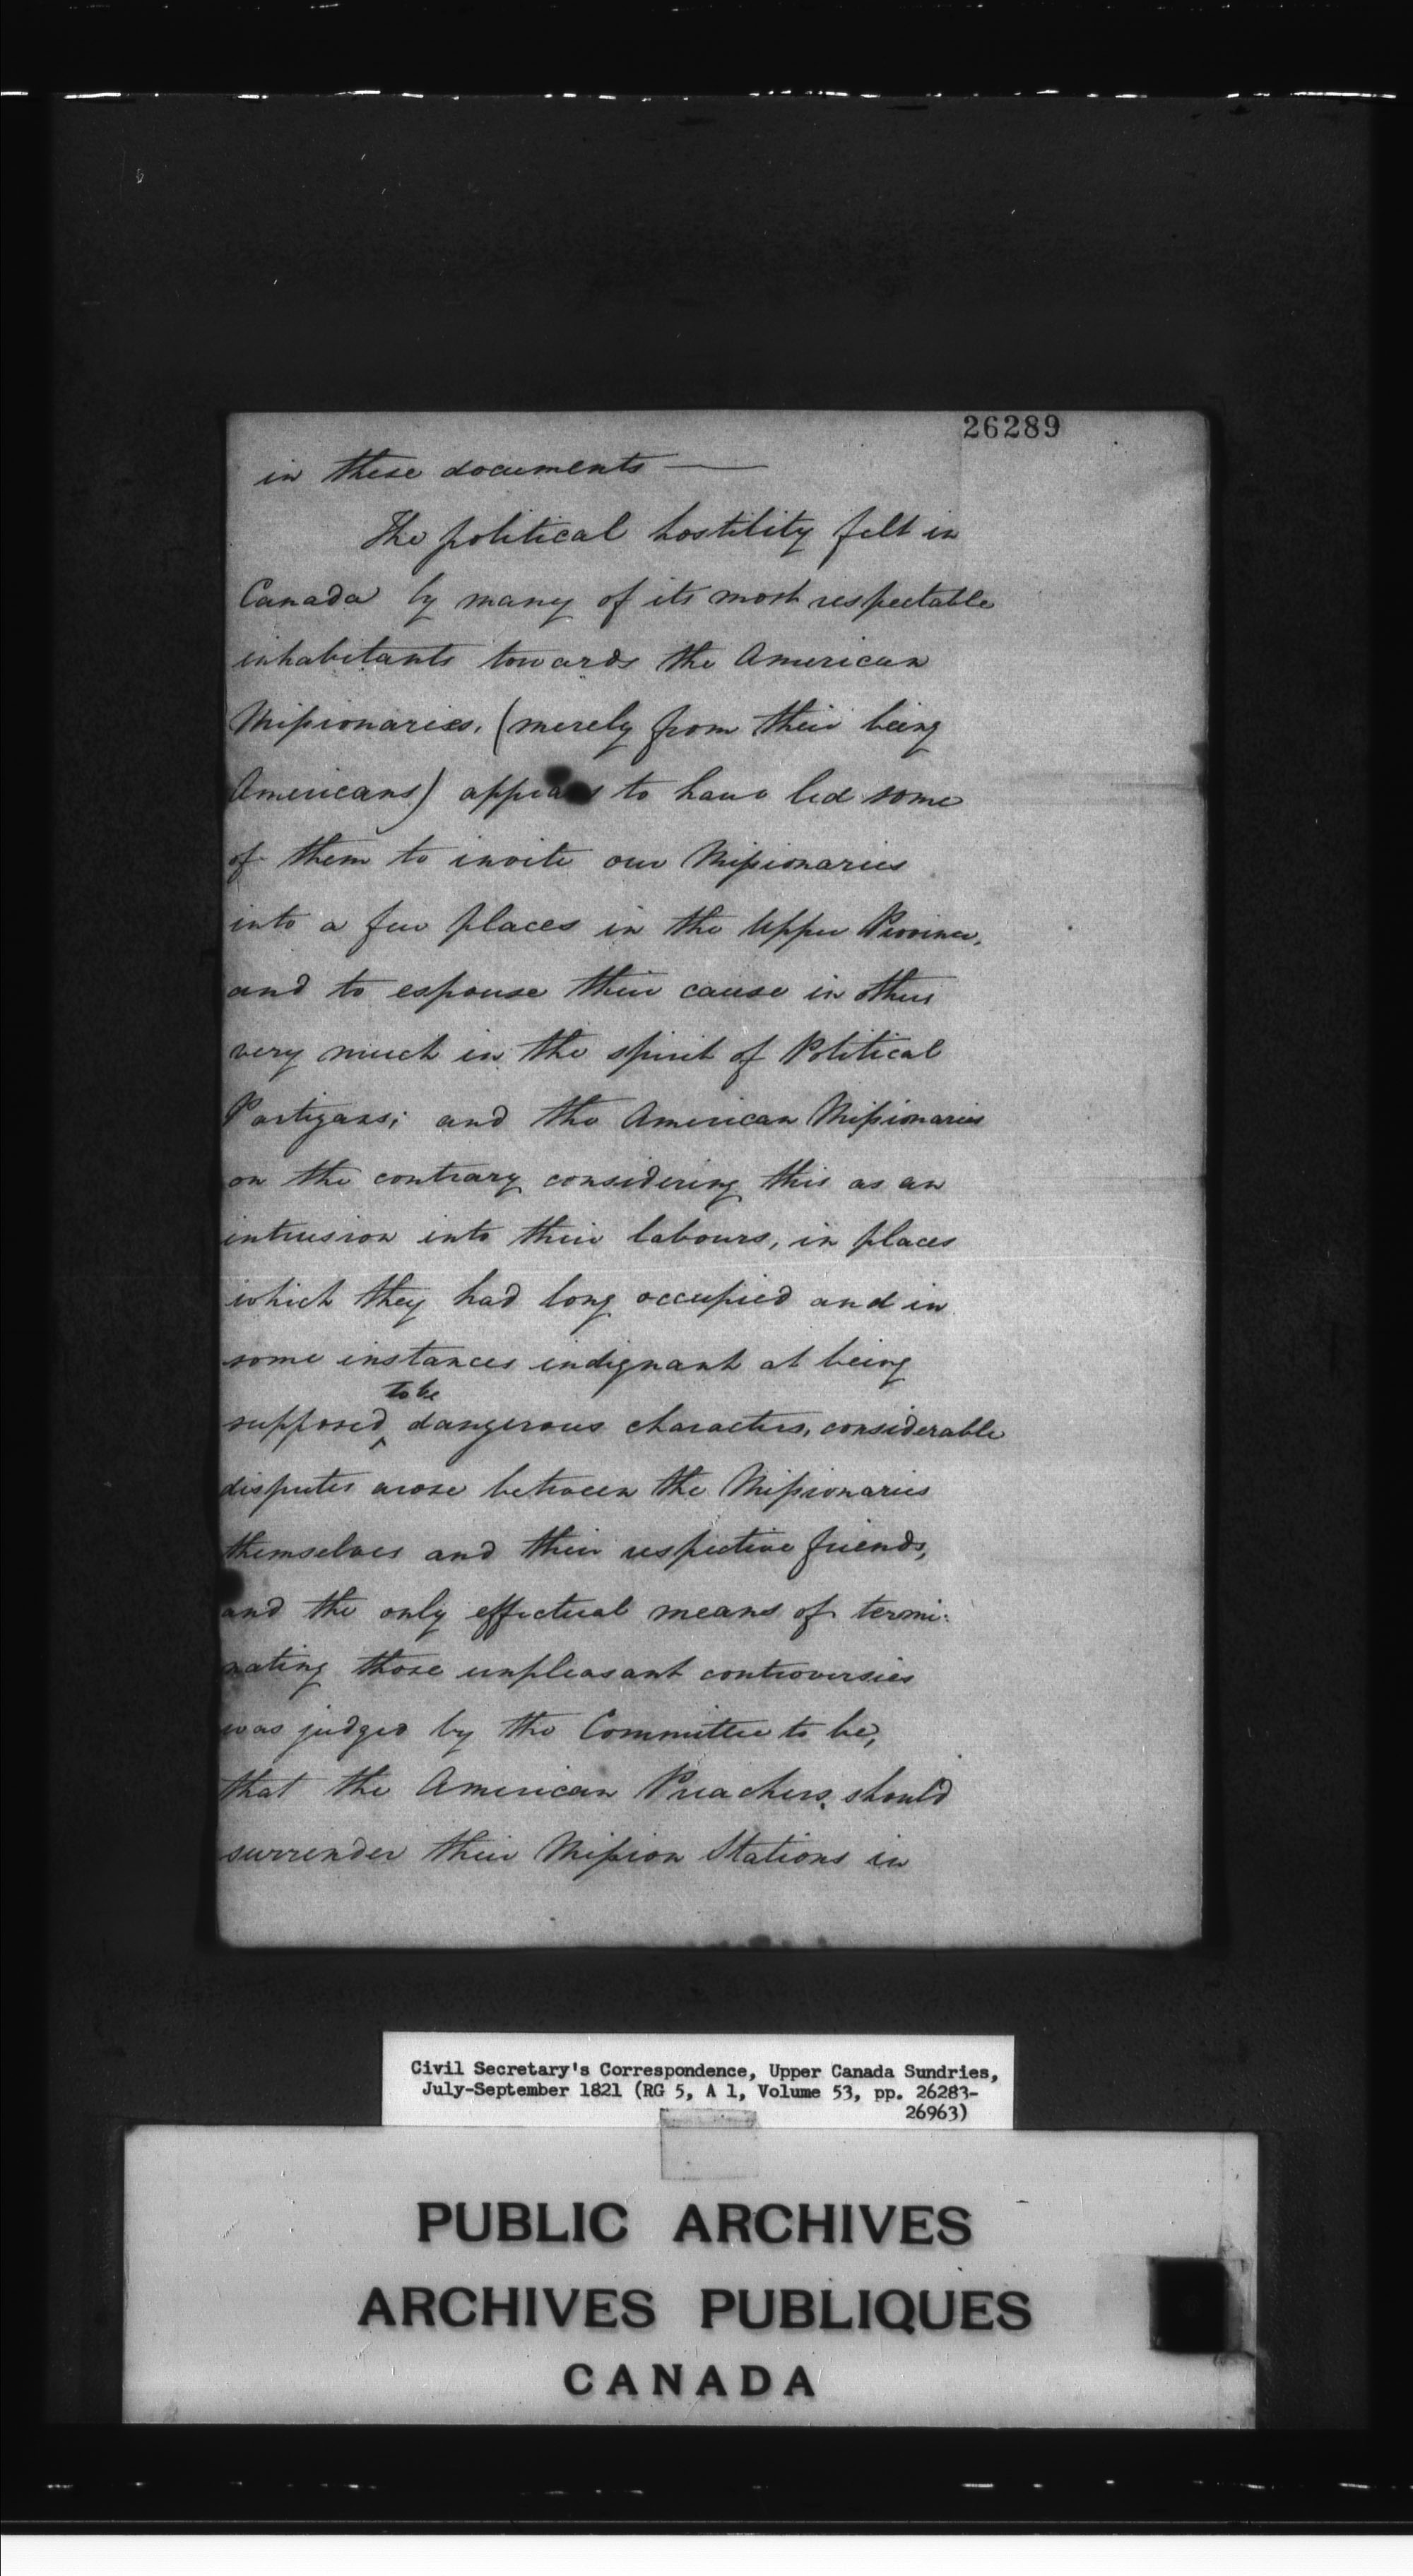 26289
in these documents —
The political hostility felt in
Canada by many of its most respectable
inhabitants towards the American
Missionaries, (merely from their being
Americans) appears to have led some
of them to invite our Missionaries
into a few places in the Upper Province,
and to espouse their cause in others
very much in the spirit of Political
Partizans; and the American Missionaries
on the contrary considering this as an
intrusion into their labours, in places
which they had long occupied and in
some instances indignant at being
to be
supposed ^ dangerous characters, considerable
disputes arose between the Missionaries
themselves and their respective friends,
and the only effectual means of termi-
nating those unpleasant controversies
was judged by the Committee to be,
that the American Preachers should
surrender their Mission Stations in
Civil Secretary's Correspondence, Upper Canada Sundries,
July-September 1821 (RG 5, A 1, Volume 53, pp. 26283-
26963)
PUBLIC ARCHIVES
ARCHIVES PUBLIQUES
CANADA